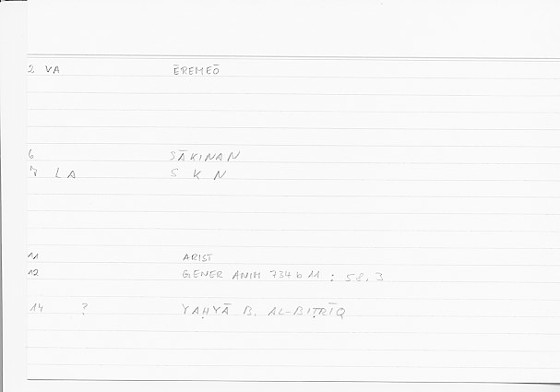 2 VA ĒREMEŌ
6 SĀKINAN
7 LA S K N
11 ARIST
12 GENER ANIM 734 b 11 : 58.3
14 ? YAḤYĀ B. AL-BIṬRĪQ